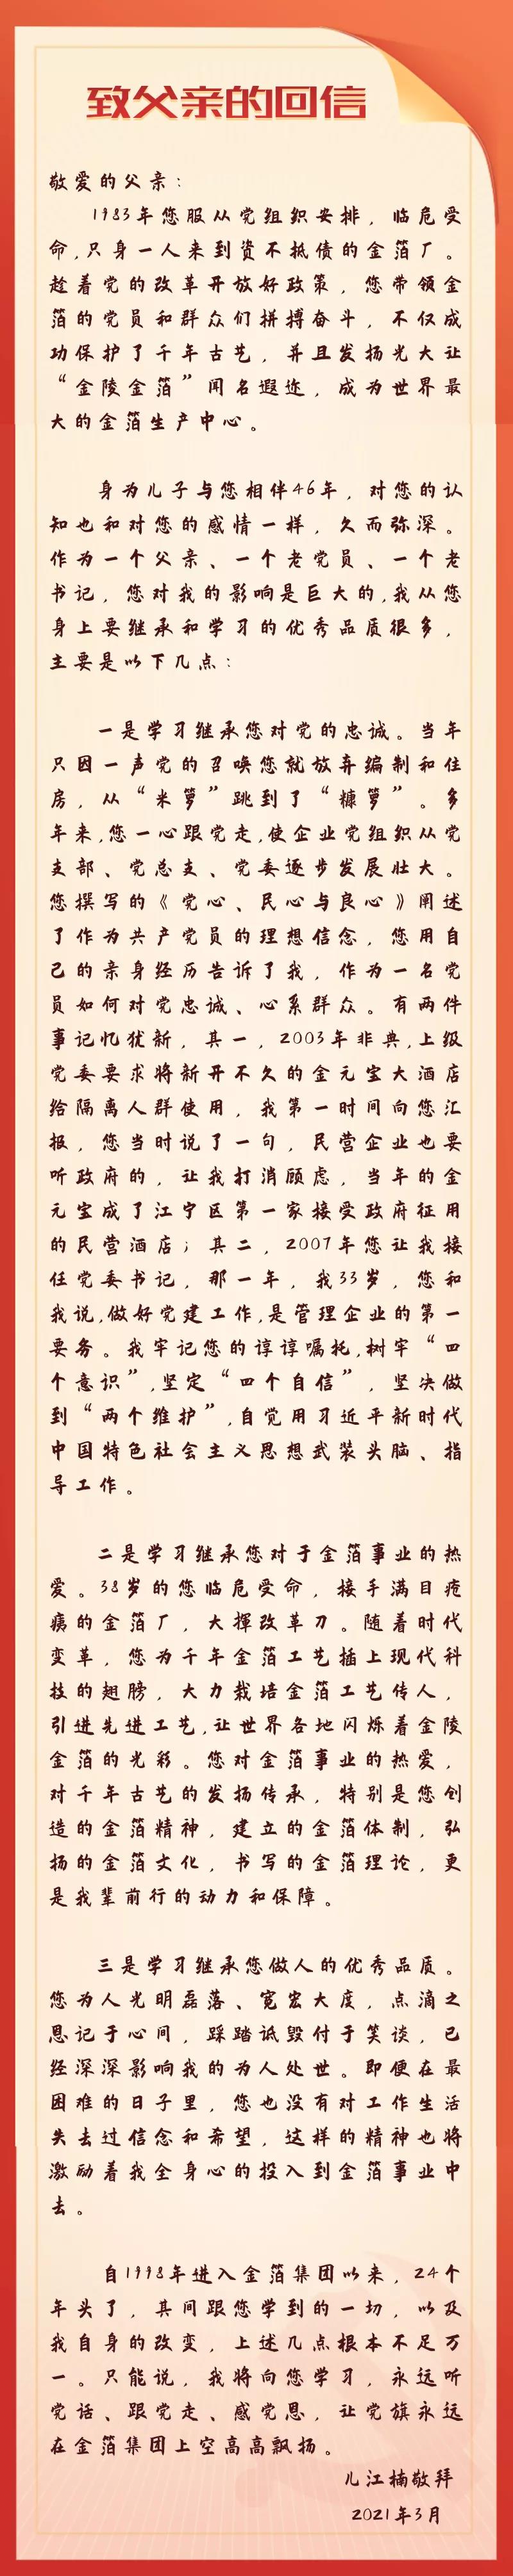 致父亲的回信
敬爱的父亲：
1983年您服从党组织安排，临危受
命，只身一人来到资不抵债的金箔厂。
趁着党的改革开放好政策，您带领金
箔的党员和群众们拼搏奋斗，不仅成
功保护了千年古艺，并且发扬光大让
“金陵金箔”闻名遐迩，成为世界最
大的金箔生产中心。
身为儿子与您相伴46年，对您的认
知也和对您的感情一样，久而弥深。
作为一个父亲、一个老党员、一个老
书记，您对我的影响是巨大的，我从您
身上要继承和学习的优秀品质很多，
主要是以下几点：
一是学习继承您对党的忠诚。当年
只因一声党的召唤您就放弃编制和住
房，从“米箩”跳到了“糠箩”。多
年来，您一心跟党走，使企业党组织从党
支部、党总支、党委逐步发展壮大。
您撰写的《党心、民心与良心》阐述
了作为共产党员的理想信念，您用自
己的亲身经历告诉了我，作为一名党
员如何对党忠诚、心系群众。有两件
事记忆犹新，其一，2003年非典，上级
党委要求将新开不久的金元宝大酒店
给隔离人群使用，我第一时间向您汇
报，您当时说了一句，民营企业也要
听政府的，让我打消顾虑，当年的金
元宝成了江宁区第一家接受政府征用
的民营酒店；其二，2007年您让我接
任党委书记，那一年，我33岁，您和
我说，做好党建工作，是管理企业的第一
要务。我牢记您的谆谆嘱托，树牢“四
个意识”，坚定“四个自信”，坚决做
到“两个维护”，自觉用习近平新时代
中国特色社会主义思想武装头脑、指
导工作。
二是学习继承您对于金箔事业的热
爱。38岁的您临危受命，接手满目疮
痍的金箔厂，大挥改革刀。随着时代
变革，您为千年金箔工艺插上现代科
技的翅膀，大力栽培金箔工艺传人，
引进先进工艺，让世界各地闪烁着金陵
金箔的光彩。您对金箔事业的热爱，
对千年古艺的发扬传承，特别是您创
造的金箔精神，建立的金箔体制，弘
扬的金箔文化，书写的金箔理论，更
是我辈前行的动力和保障。
三是学习继承您做人的优秀品质。
您为人光明磊落、宽宏大度，点滴之
恩记于心间，踩踏诋毁付于笑谈，已
经深深影响我的为人处世。即便在最
困难的日子里，您也没有对工作生活
失去过信念和希望，这样的精神也将
激励着我全身心的投入到金箔事业中
去。
自1998年进入金箔集团以来，24个
年头了，其间跟您学到的一切，以及
我自身的改变，上述几点根本不足万
一。只能说，我将向您学习，永远听
党话、跟党走、感党恩，让党旗永远
在金箔集团上空高高飘扬。
儿江楠敬拜
2021年3月